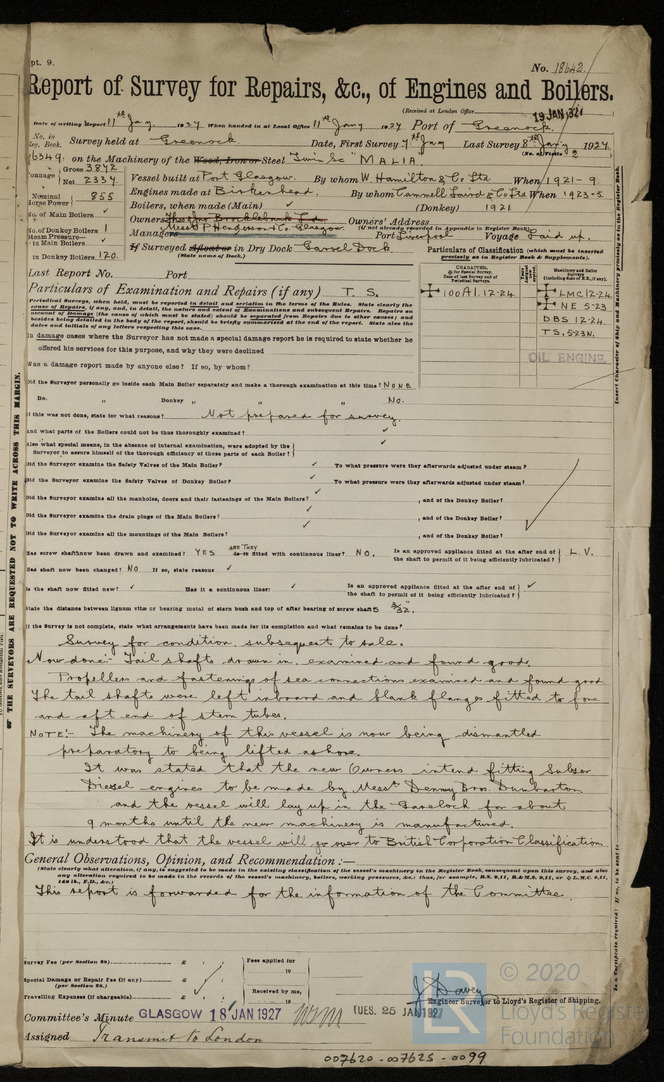 pt. 9.
No. 18642
Report of Survey for Repairs, &c., of Engines and Boilers.
(Received at London Office
19 JAN 1927
Date of writing Report 11th Jany 1927 When handed in at Local Office 11th Jany 1927 Port of Greenock.
No. in Reg. Book. Survey held at Greenock Date, First Survey 7th Jany Last Survey 8th Jany 1927
(No. of Visits 2
on the Machinery of the Wood, Iron or Steel Twin Sc "MALIA"
Tonnage Gross 3872
Net 2334
Vessel built at Port Glasgow. By whom W. Hamilton & Co Ltd When 1921-9
Nominal Horse Power 855
Engines made at Birkenhead. By whom Cammell Laird & Co Ltd When 1923-5
No. of Main Boilers ✓ Boilers, when made (Main) ✓ (Donkey) 1921
No. of Donkey Boilers 1 Owners Thos & Jno Brocklebank Ltd. Owners' Address
(If not already recorded in Appendix to Register Book.)
Steam Pressure—
in Main Boilers ✓ Managers Messrs P Henderson & Co. Glasgow. Port Liverpool Voyage Laid up.
in Donkey Boilers 120. If Surveyed Afloat or in Dry Dock Garvel Dock
(State name of Dock.)
Particulars of Classification (which must be inserted precisely as in Register Book & Supplements).
Last Report No. Port
CHARACTER.
Machinery and Boiler Surveys
Particulars of Examination and Repairs (if any) T. S.
100A1.12-24
LMC 12-24
NE 5-23
DBS 12-24
TS. 5-23N.
OIL ENGINE.
Periodical Surveys, when held, must be reported in detail and seriatim in the terms of the Rules. State clearly the
cause of Repairs, if any, and, in detail, the nature and extent of Examinations and subsequent Repairs. Repairs on
account of Damage (the cause of which must be stated) should be separated from Repairs due to other causes; and
besides being detailed in the body of the report, should be briefly summarised at the end of the report. State also the
dates and initials of any letters respecting this case.
In damage cases where the Surveyor has not made a special damage report he is required to state whether he
offered his services for this purpose, and why they were declined
Was a damage report made by anyone else? If so, by whom?
Did the Surveyor personally go inside each Main Boiler separately and make a thorough examination at this time? NONE
Do. „ Donkey „ „ „ No.
If this was not done, state for what reasons? Not prepared for survey.
And what parts of the Boilers could not be thus thoroughly examined? ✓
Also what special means, in the absence of internal examination, were adopted by the
Surveyor to assure himself of the thorough efficiency of those parts of each Boiler? ✓
Did the Surveyor examine the Safety Valves of the Main Boiler? ✓ To what pressure were they afterwards adjusted under steam?
Did the Surveyor examine the Safety Valves of Donkey Boiler? ✓ To what pressure were they afterwards adjusted under steam?
Did the Surveyor examine all the manholes, doors and their fastenings of the Main Boilers? ✓ , and of the Donkey Boiler?
Did the Surveyor examine the drain plugs of the Main Boilers? ✓ , and of the Donkey Boiler?
Did the Surveyor examine all the mountings of the Main Boilers? ✓ , and of the Donkey Boiler?
Has screw shafts now been drawn and examined? YES Is it ARE THEY fitted with continuous liner? NO. Is an approved appliance fitted at the after end of
the shaft to permit of it being efficiently lubricated? L.V.
Has shaft now been changed? NO If so, state reasons ✓
Is the shaft now fitted new? ✓ Has it a continuous liner? ✓ Is an approved appliance fitted at the after end of
the shaft to permit of it being efficiently lubricated? ✓
State the distance between lignum vitæ or bearing metal of stern bush and top of after bearing of screw shafts 3/32".
If the Survey is not complete, state what arrangements have been made for its completion and what remains to be done?
Survey for condition subsequent to sale.
Now done:- Tail shafts drawn in, examined and found good.
Propellers and fastenings of sea connections examined and found good
The tail shafts were left inboard and blank flanges fitted to fore
and aft end of stern tubes.
NOTE:- The machinery of this vessel is now being dismantled
preparatory to being lifted ashore.
It was stated that the new Owners intend fitting Sulzer
Diesel engines to be made by Messrs Denny Bros. Dumbarton
and the vessel will lay up in the Gareloch for about
9 months until the new machinery is manufactured.
It is understood that the vessel will go over to British Corporation Classification
General Observations, Opinion, and Recommendation:—
(State clearly what alteration, if any, is suggested to be made in the existing classification of the vessel's machinery in the Register Book, consequent upon this survey, and also
any alteration required to be made in the records of the vessel's machinery, boilers, working pressures, &c.; thus, for example, B.S. 9,11, B.&M.S. 9,11, or L.M.C. 9,11,
140 lb., F.D., &c.)
This report is forwarded for the information of the Committee.
Survey Fee (per Section 28) £ : : Fees applied for
19
Special Damage or Repair Fee (if any) £ : :
(per Section 28.) Received by me,
Travelling Expenses (if chargeable) £ : : 19
Engineer Surveyor to Lloyd's Register of Shipping.
Committee's Minute GLASGOW 18 JAN 1927 TUES. 25 JAN 1927
Assigned Transmit to London
007620-007625-0099
OF THE SURVEYORS ARE REQUESTED NOT TO WRITE ACROSS THIS MARGIN.
Insert Character of Ship and Machinery precisely as in the Register Book.
LR
© 2020
Lloyd's Register
Foundation